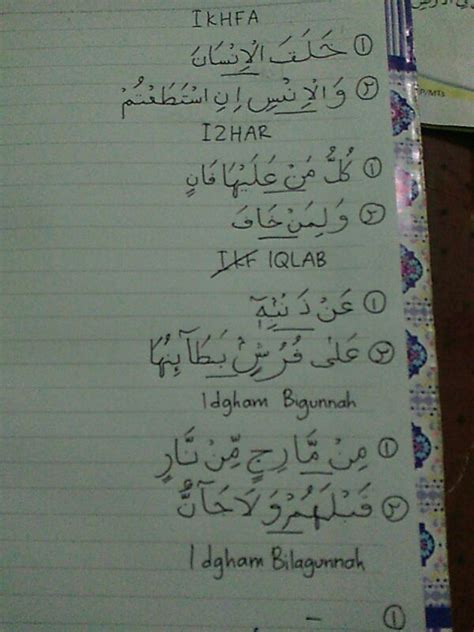 IKHFA
① خَلَقَ الْاِنْسَانَ
② وَالْاِنْسِ اِنِ اسْتَطَعْتُمْ
IZHAR
① كُلُّ مَنْ عَلَيْهَا فَانٍ
② وَلِمَنْ خَافَ
IKF IQLAB
① عَنْ ذَنْبِهٖٓ
② عَلٰى فُرُشٍ بَطَآئِنُهَا
Idgham Bigunnah
① مِنْ مَّارِجٍ مِّنْ نَّارٍ
② قَبْلَهُمْ وَلَا جَآنٌّ
Idgham Bilagunnah
①
P/MTs